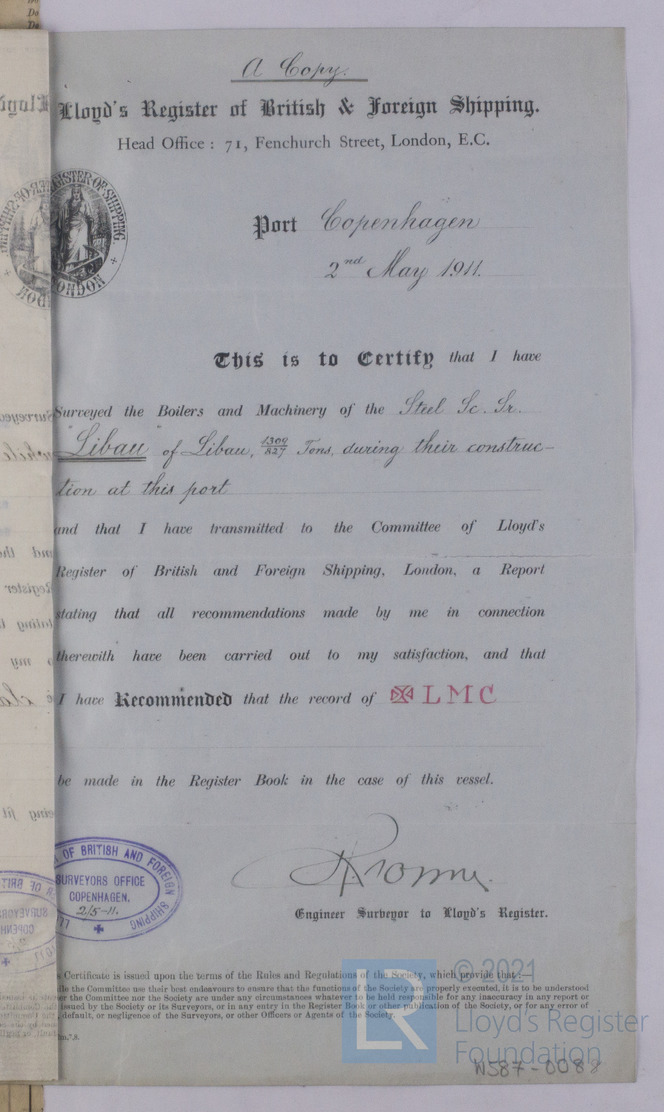 A Copy.
Lloyd's Register of British & Foreign Shipping.
Head Office: 71, Fenchurch Street, London, E.C.
Port Copenhagen
2nd May 1911.
This is to Certify that I have
Surveyed the Boilers and Machinery of the Steel Sc. Sr.
"Libau" of Libau, 1309/827 Tons, during their construc-
tion at this port
and that I have transmitted to the Committee of Lloyd's
Register of British and Foreign Shipping, London, a Report
stating that all recommendations made by me in connection
therewith have been carried out to my satisfaction, and that
I have Recommended that the record of LMC
be made in the Register Book in the case of this vessel.
OF BRITISH AND FOREIGN SHIPPING
SURVEYORS OFFICE
COPENHAGEN,
2/5-11.
Engineer Surveyor to Lloyd's Register.
Certificate is issued upon the terms of the Rules and Regulations of the Society, which provide that:—
the Committee use their best endeavours to ensure that the functions of the Society are properly executed, it is to be understood
the Committee nor the Society are under any circumstances whatever to be held responsible for any inaccuracy in any report or
issued by the Society or its Surveyors, or in any entry in the Register Book or other publication of the Society, or for any error of
default, or negligence of the Surveyors, or other Officers or Agents of the Society.
LR
© 2021
Lloyd's Register
Foundation
W587-0088